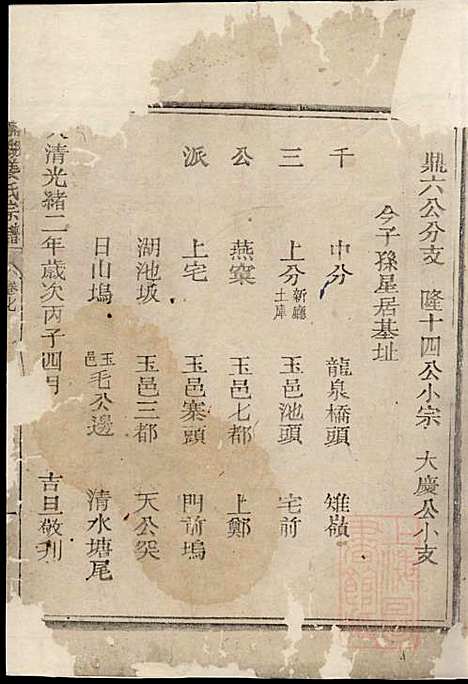 鼎六公分支 隆十四公小宗 大慶公小支
今子孫星居基址
千 中分 龍泉橋頭 雉嶺
三 上分 新廳土庫 玉邑池頭 宅前
公 燕窠 玉邑七都 上鄭
派 上宅 玉邑寨頭 門前塢
湖池坂 玉邑三都 天公突
日山塢 玉邑毛公邊 清水塘尾
清光緒二年歲次丙子四月 吉旦敬刋
氏宗譜